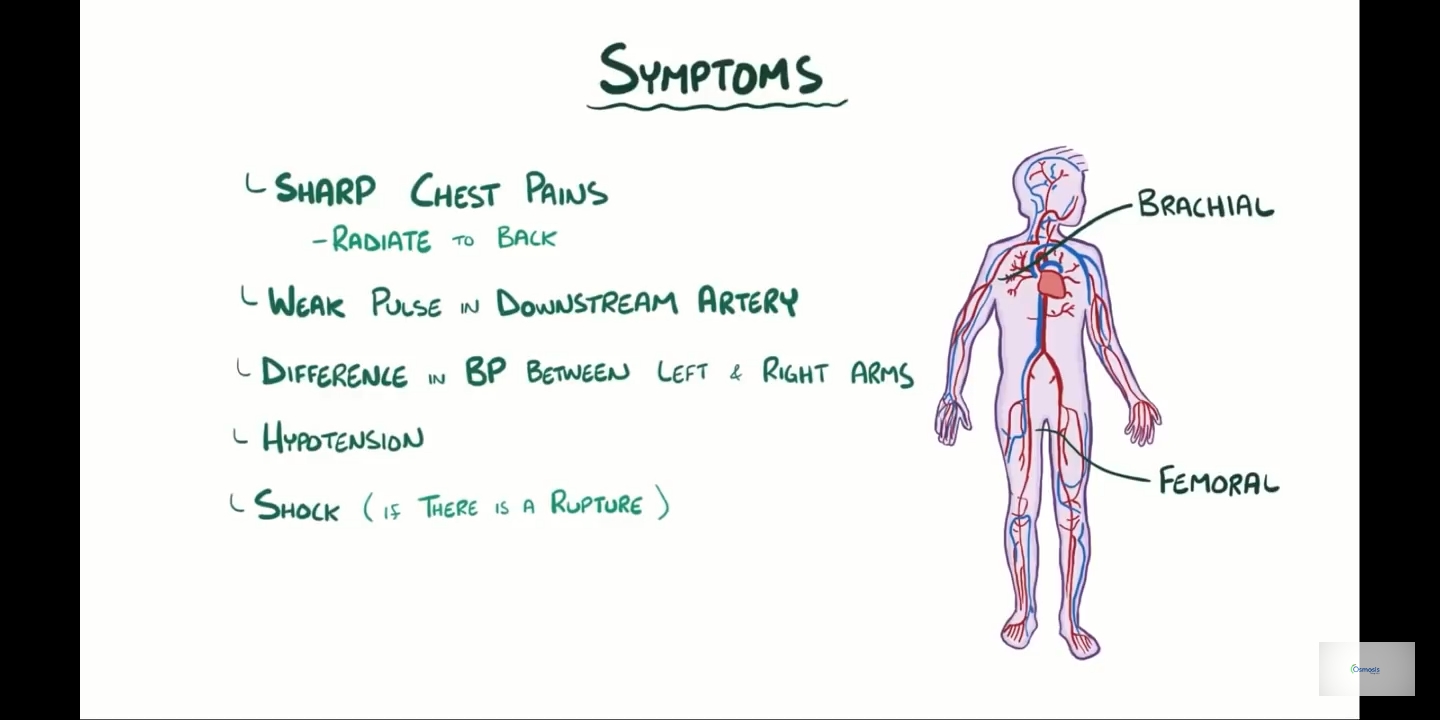 SYMPTOMS
SHARP CHEST PAINS
- RADIATE TO BACK
WEAK PULSE IN DOWNSTREAM ARTERY
DIFFERENCE IN BP BETWEEN LEFT & RIGHT ARMS
HYPOTENSION
SHOCK (IF THERE IS A RUPTURE)
BRACHIAL
FEMORAL
Osmosis